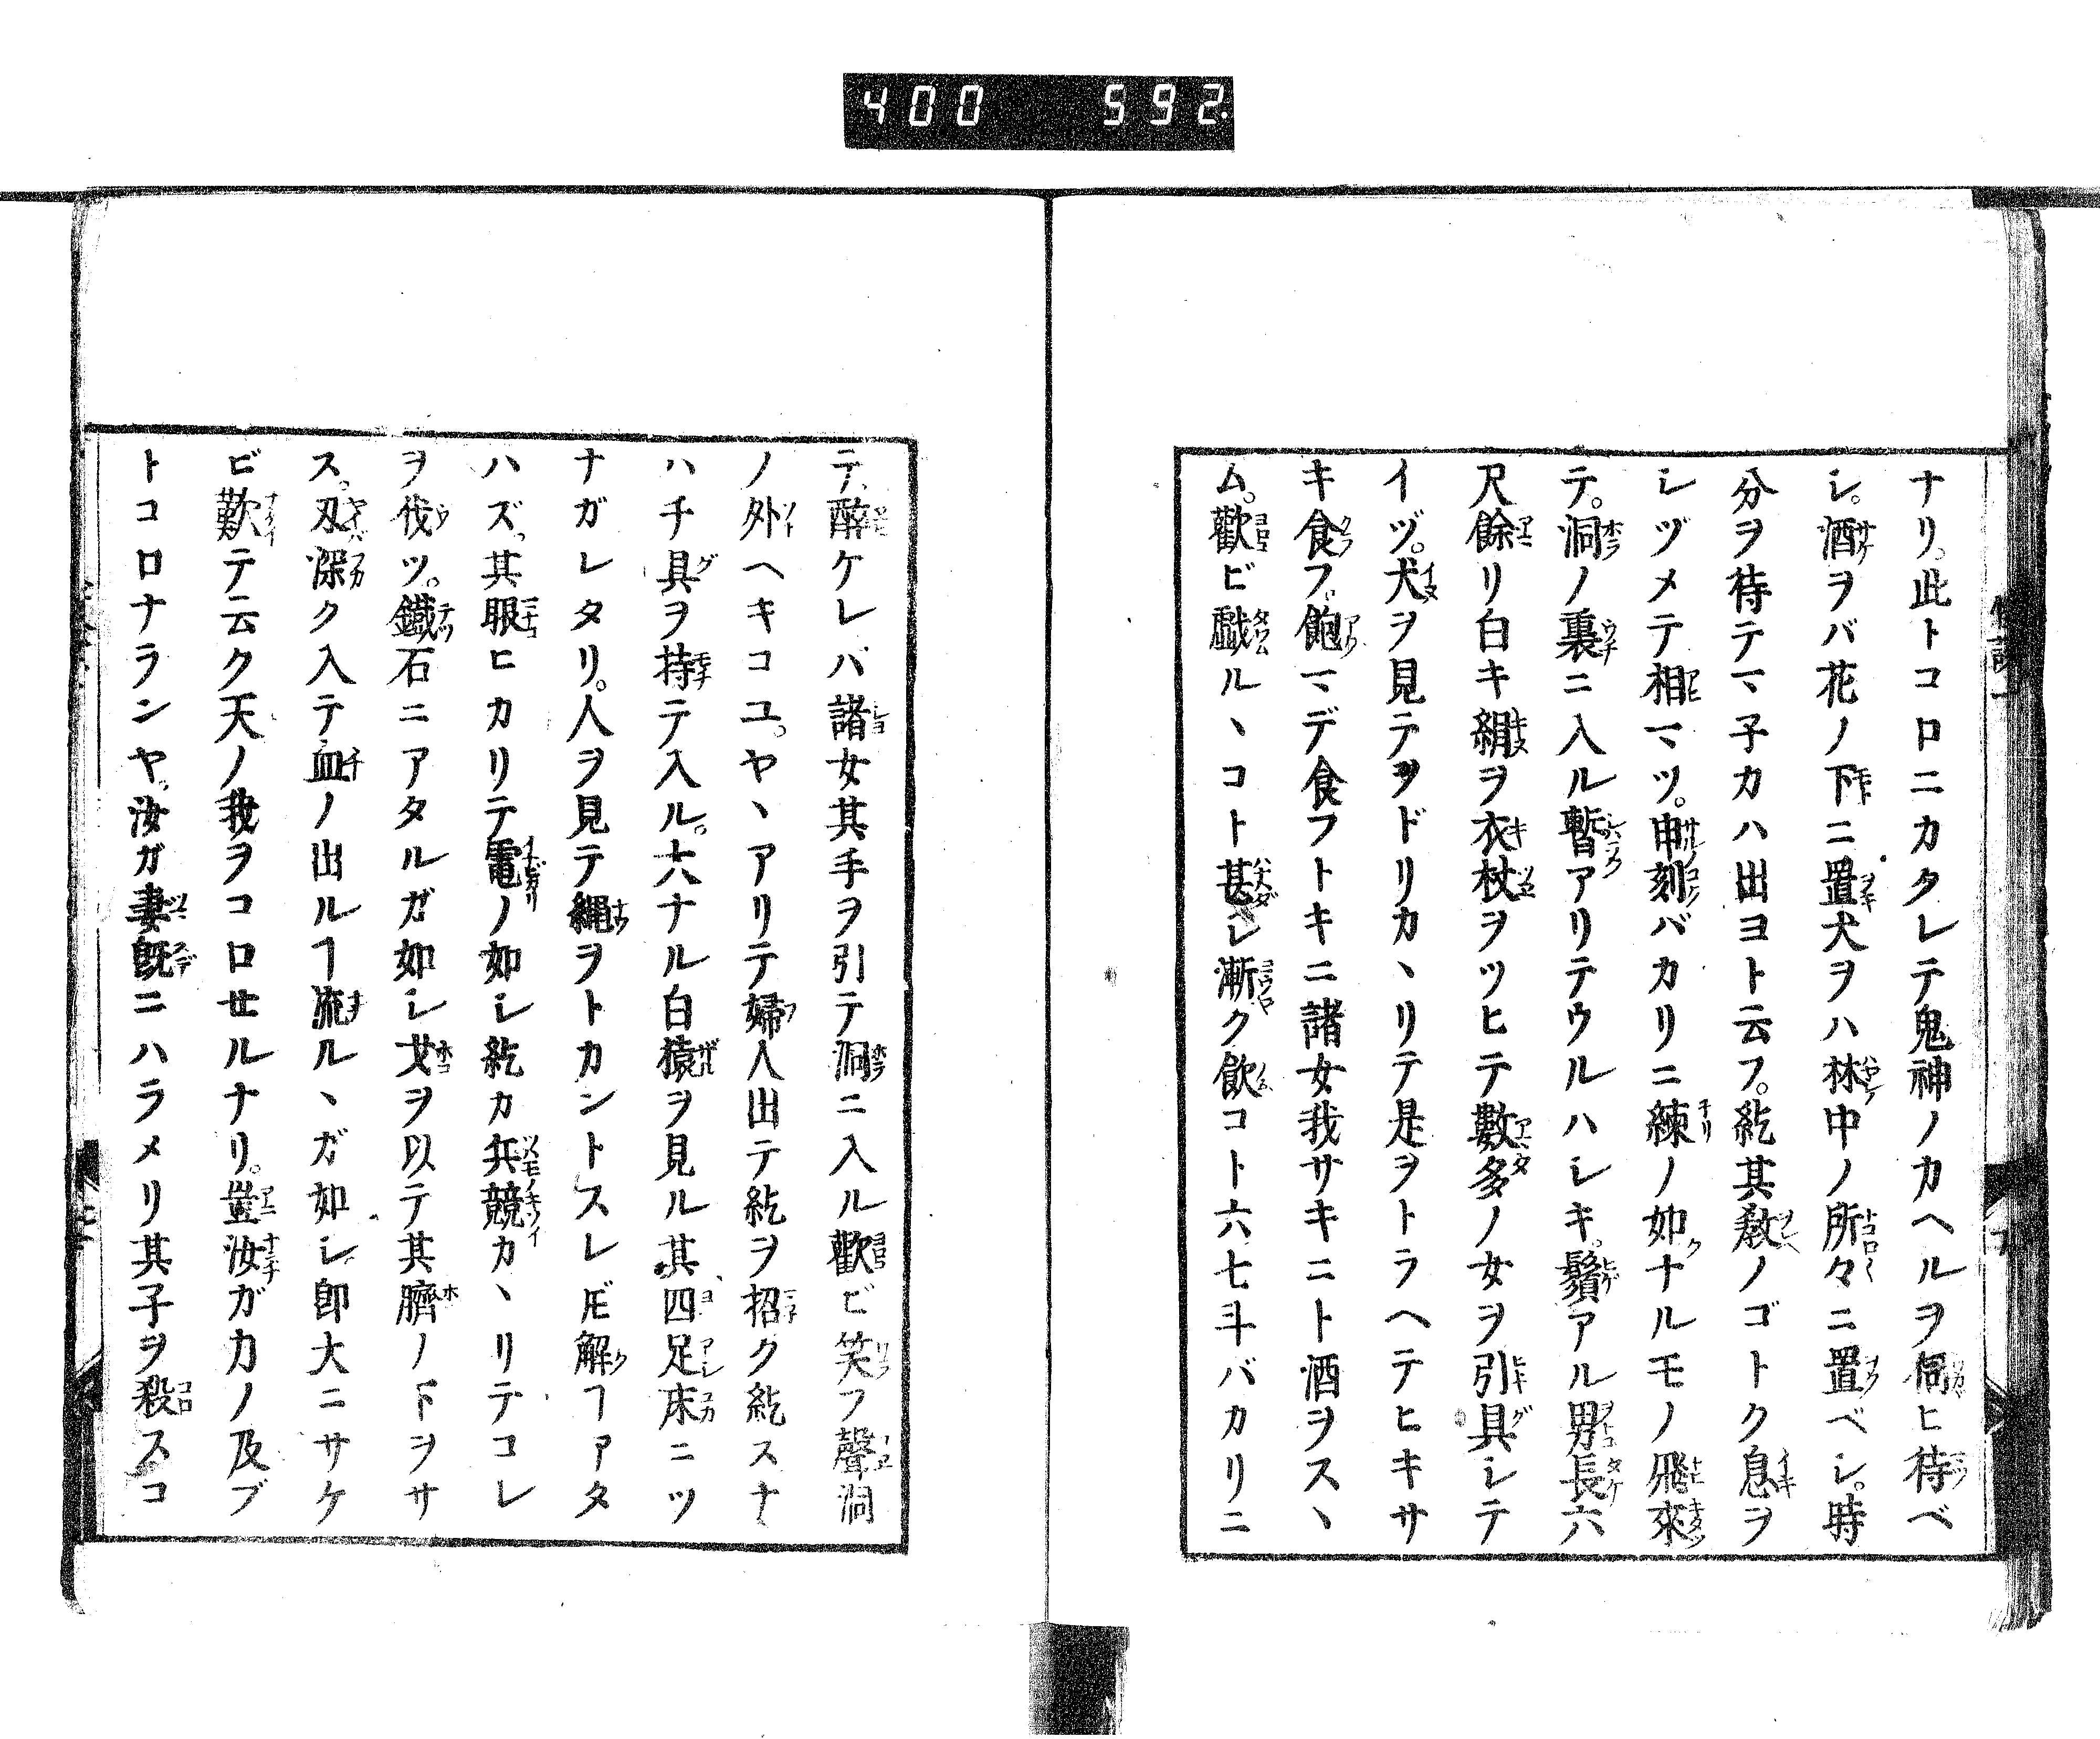 400 592.
ナリ。此トコロニカクレテ鬼神ノカヘルヲ伺ヒ待ベ
シ。酒ヲバ花ノ下ニ置犬ヲハ林中ノ所々ニ置ベシ。時
分ヲ待テマ子カハ出ヨト云フ。紇其敎ノゴトク息ヲ
シヅメテ相マツ。申刻バカリニ練ノ如ナルモノ飛來
テ。洞ノ裏ニ入ル暫アリテウルハシキ。鬚アル男長六
尺餘リ白キ絹ヲ衣杖ヲツヒテ數多ノ女ヲ引具シテ
イヅ。犬ヲ見テヲドリカヽリテ是ヲトラヘテヒキサ
キ食フ。飽マデ食フトキニ諸女我サキニト酒ヲスヽ
ム。歡ビ戯ルヽコト甚シ漸ク飮コト六七斗バカリニ
テ。醉ケレバ諸女其手ヲ引テ洞ニ入ル歡ビ笑フ聲洞
ノ外ヘキコユ。ヤヽアリテ婦人出テ紇ヲ招ク紇スナ
ハチ具ヲ持テ入ル。大ナル白猿ヲ見ル其四足床ニツ
ナガレタリ。人ヲ見テ縄ヲトカントスレ𪜈解ヿアタ
ハズ。其眼ヒカリテ電ノ如シ紇カ兵競カヽリテコレ
ヲ伐ツ。鐵石ニアタルガ如シ戈ヲ以テ其臍ノ下ヲサ
ス。刄深ク入テ血ノ出ルヿ流ルヽガ如シ卽大ニサケ
ビ歎テ云ク天ノ我ヲコロセルナリ。豈汝ガ力ノ及ブ
トコロナランヤ。汝ガ妻旣ニハラメリ其子ヲ殺スコ